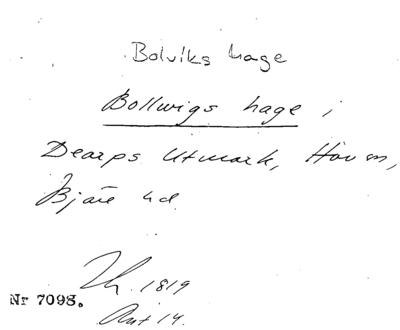 Bolviks hage
Bollwigs hage i
Dearps Utmark, Hov sn,
Bjäre hd
1819
Nr 7098.
Akt 14.